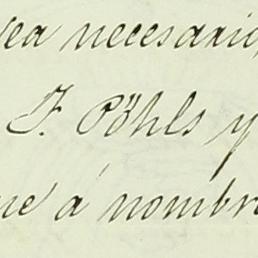 sea necesario,
F. Pöhls y
que á nombre